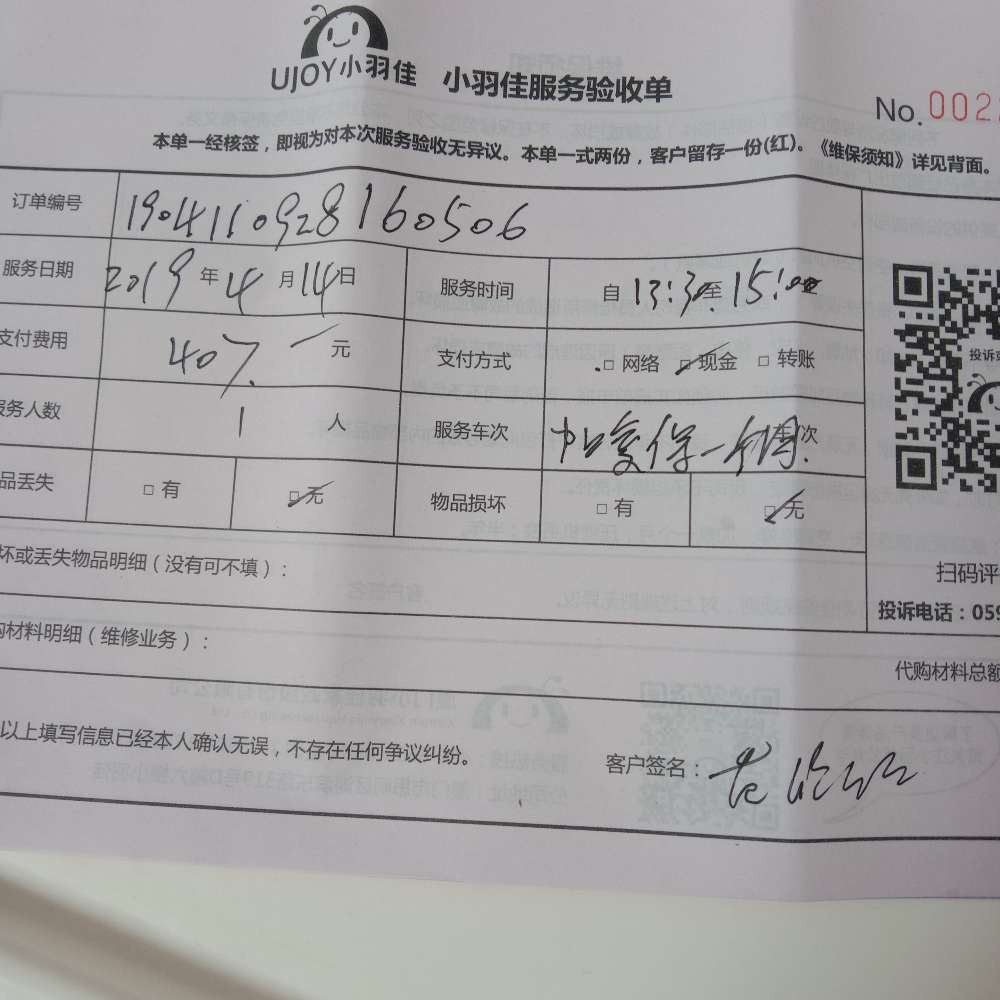 UJOY小羽佳 小羽佳服务验收单
No.002
本单一经核签,即视为对本次服务验收无异议。本单一式两份,客户留存一份(红)。《维保须知》详见背面。
订单编号 1904110928160506
服务日期 2019年4月14日 服务时间 自13:30至15:00
支付费用 407. 元 支付方式 □网络 □现金 □转账
服务人数 1 人 服务车次 保一 车次
品丢失 □有 □无 物品损坏 □有 □无
投诉
坏或丢失物品明细(没有可不填):
扫码评
投诉电话:059
购材料明细(维修业务):
代购材料总额
以上填写信息已经本人确认无误,不存在任何争议纠纷。 客户签名: